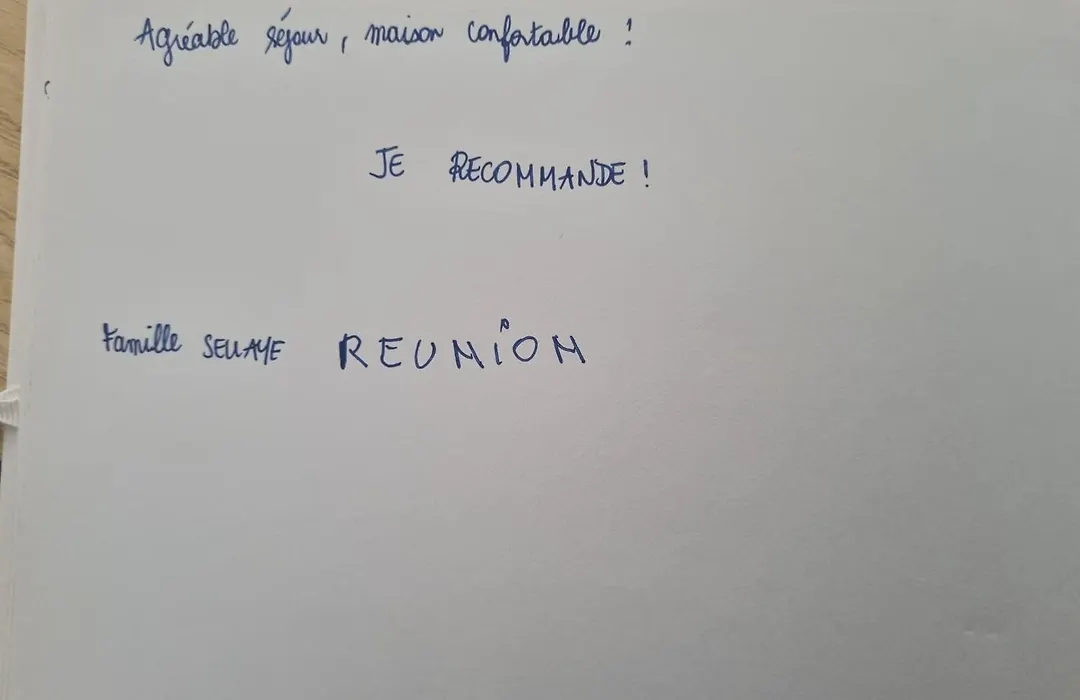 Agréable séjour, maison confortable !
JE RECOMMANDE !
Famille SELLAYE REUNiON